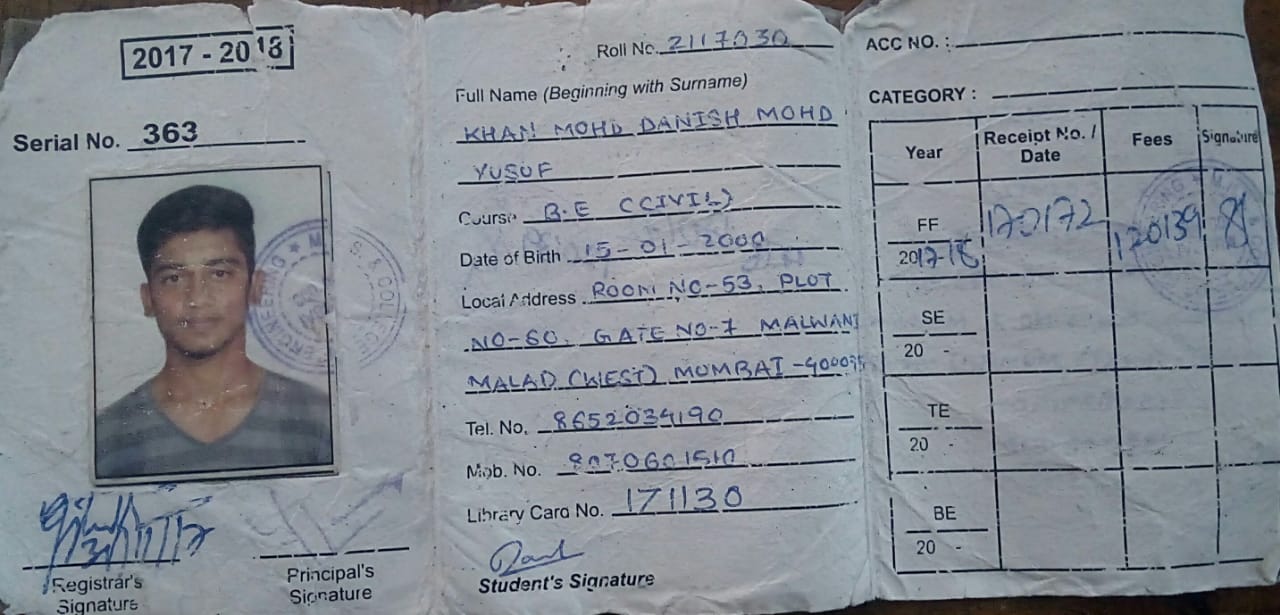 2017 - 2018
Serial No. 363
Registrar's
Signature
Principal's
Signature
Roll No. 2117030
Full Name (Beginning with Surname)
KHAN MOHD DANISH MOHD
YUSUF
Course B.E (CIVIL)
Date of Birth 15-01-2000
Local Address ROOM NO-53, PLOT
NO-60, GATE NO-7 MALWANI
MALAD (WEST) MUMBAI -400095
Tel. No. 8652034190
Mob. No.
Library Card No. 171130
Student's Signature
ACC NO. :
CATEGORY :
Year Receipt No. / Date Fees Signature
FF 170172 120139
2017-18
SE
20 -
TE
20 -
BE
20 -